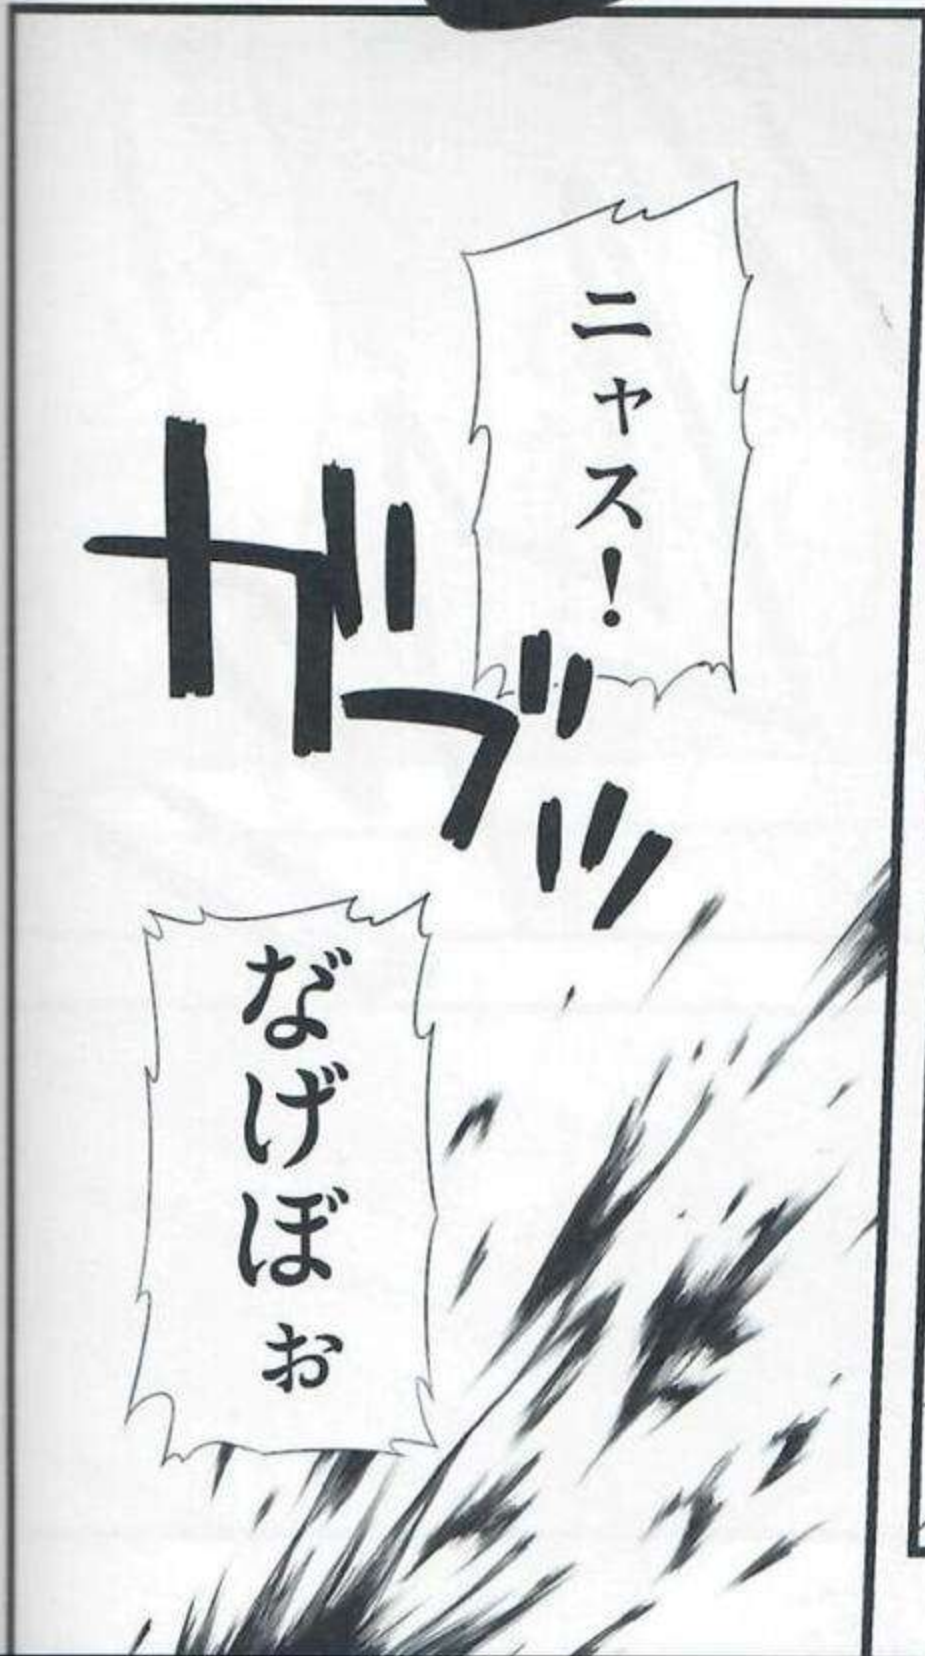 ニャス!
ガブッ
な゙げぼぉ